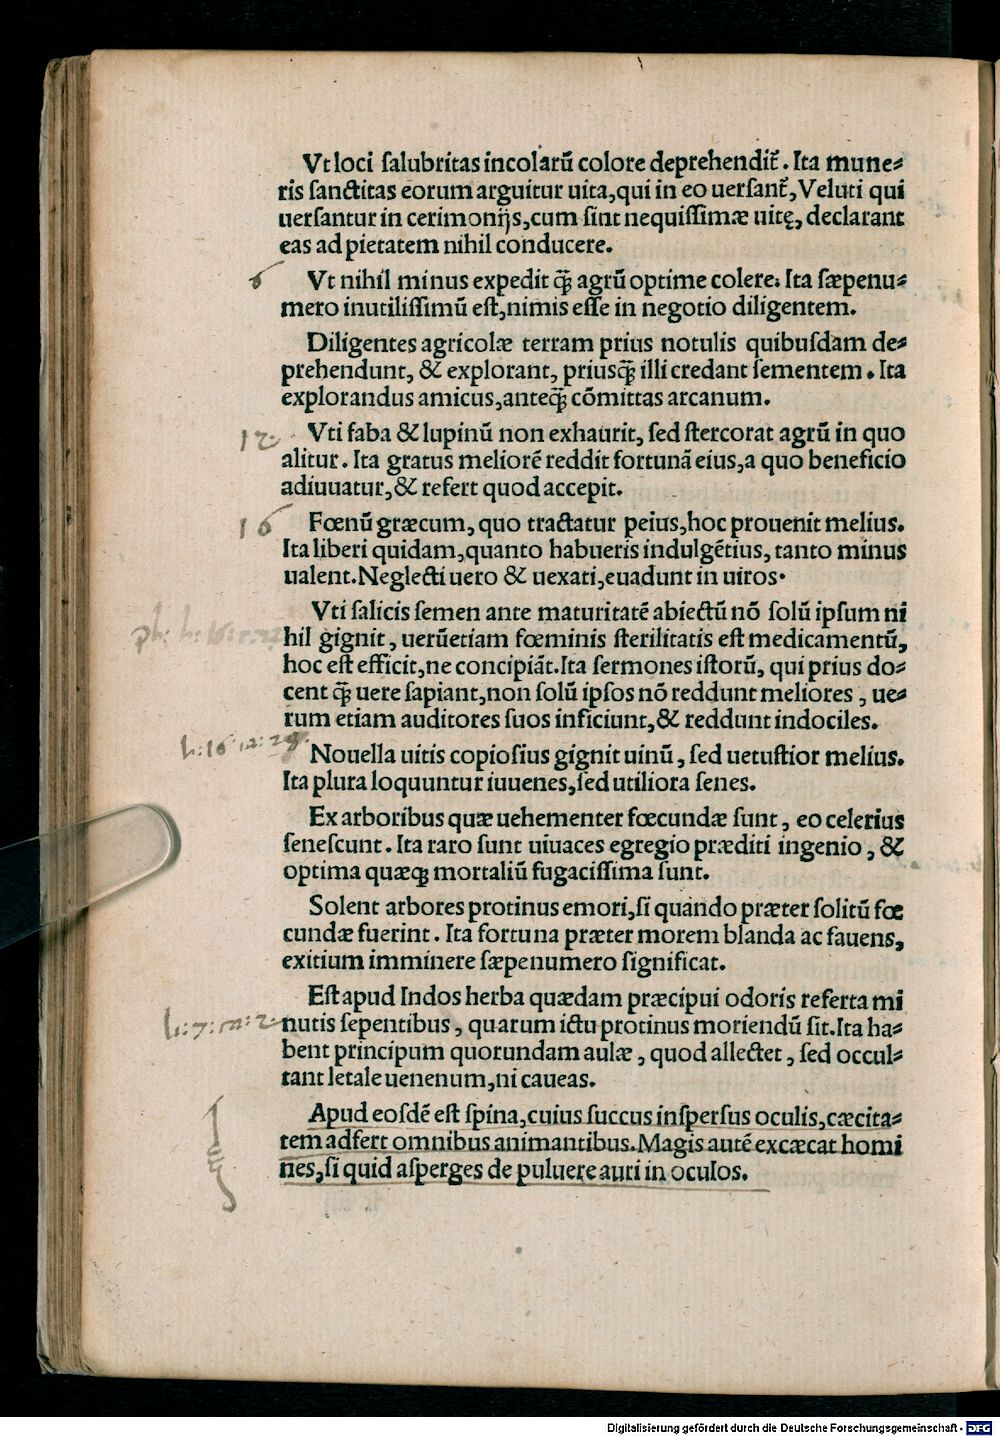 Vt loci ſalubritas incolarũ colore deprehendit᷑. Ita mune⸗
ris ſanctitas eorum arguitur uita, qui in eo uerſant᷑, Veluti qui
uerſantur in cerimonijs, cum ſint nequiſſimæ uitę, declarant
eas ad pietatem nihil conducere.
6 Vt nihil minus expedit q̃ꝫ agrũ optime colere: Ita ſæpenu⸗
mero inutiliſſimũ eſt, nimis eſſe in negotio diligentem.
Diligentes agricolæ terram prius notulis quibuſdam de⸗
prehendunt, & explorant, priusq̃ꝫ illi credant ſementem. Ita
explorandus amicus, anteq̃ꝫ cõmittas arcanum.
12 Vti faba & lupinũ non exhaurit, ſed ſtercorat agrũ in quo
alitur. Ita gratus meliorẽ reddit fortunã eius, a quo beneficio
adiuuatur, & refert quod accepit.
16 Fœnũ græcum, quo tractatur peius, hoc prouenit melius.
Ita liberi quidam, quanto habueris indulgẽtius, tanto minus
ualent. Neglecti uero & uexati, euadunt in uiros.
Vti ſalicis ſemen ante maturitatẽ abiectũ nõ ſolũ ipſum ni
hil gignit, uerũetiam fœminis ſterilitatis eſt medicamentũ,
hoc eſt efficit, ne concipiãt. Ita ſermones iſtorũ, qui prius do⸗
cent q̃ꝫ uere ſapiant, non ſolũ ipſos nõ reddunt meliores, ue⸗
rum etiam auditores ſuos inficiunt, & reddunt indociles.
Nouella uitis copioſius gignit uinũ, ſed uetuſtior melius.
Ita plura loquuntur iuuenes, ſed utiliora ſenes.
Ex arboribus quæ uehementer fœcundæ ſunt, eo celerius
ſeneſcunt. Ita raro ſunt uiuaces egregio præditi ingenio, &
optima quæqꝫ mortaliũ fugaciſſima ſunt.
Solent arbores protinus emori, ſi quando præter ſolitũ fœ
cundæ fuerint. Ita fortuna præter morem blanda ac fauens,
exitium imminere ſæpenumero ſignificat.
Eſt apud Indos herba quædam præcipui odoris referta mi
nutis ſepentibus, quarum ictu protinus moriendũ ſit. Ita ha⸗
bent principum quorundam aulæ, quod allectet, ſed occul⸗
tant letale uenenum, ni caueas.
Apud eoſdẽ eſt ſpina, cuius ſuccus inſperſus oculis, cæcita⸗
tem adfert omnibus animantibus. Magis autẽ excæcat homi
nes, ſi quid aſperges de puluere auri in oculos.
Digitalisierung gefördert durch die Deutsche Forschungsgemeinschaft - DFG